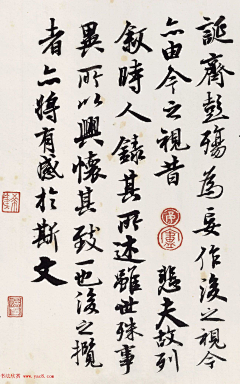 誕齊彭殤為妄作後之視今
亦由今之視昔 悲夫故列
敘時人錄其所述雖世殊事
異所以興懷其致一也後之攬
者亦將有感於斯文